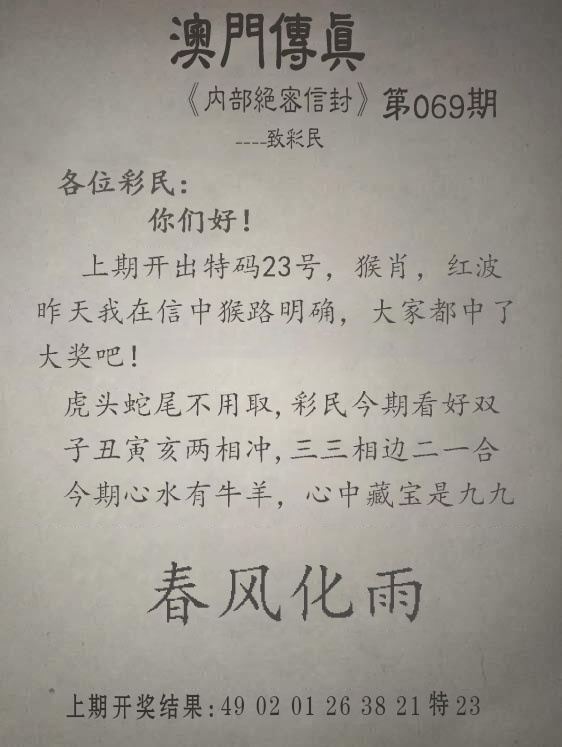 澳門傳真
《内部絕密信封》第069期
----致彩民
各位彩民:
你们好!
上期开出特码23号，猴肖，红波
昨天我在信中猴路明确，大家都中了
大奖吧!
虎头蛇尾不用取,彩民今期看好双
子丑寅亥两相冲,三三相边二一合
今期心水有牛羊，心中藏宝是九九
春风化雨
上期开奖结果:49 02 01 26 38 21 特 23